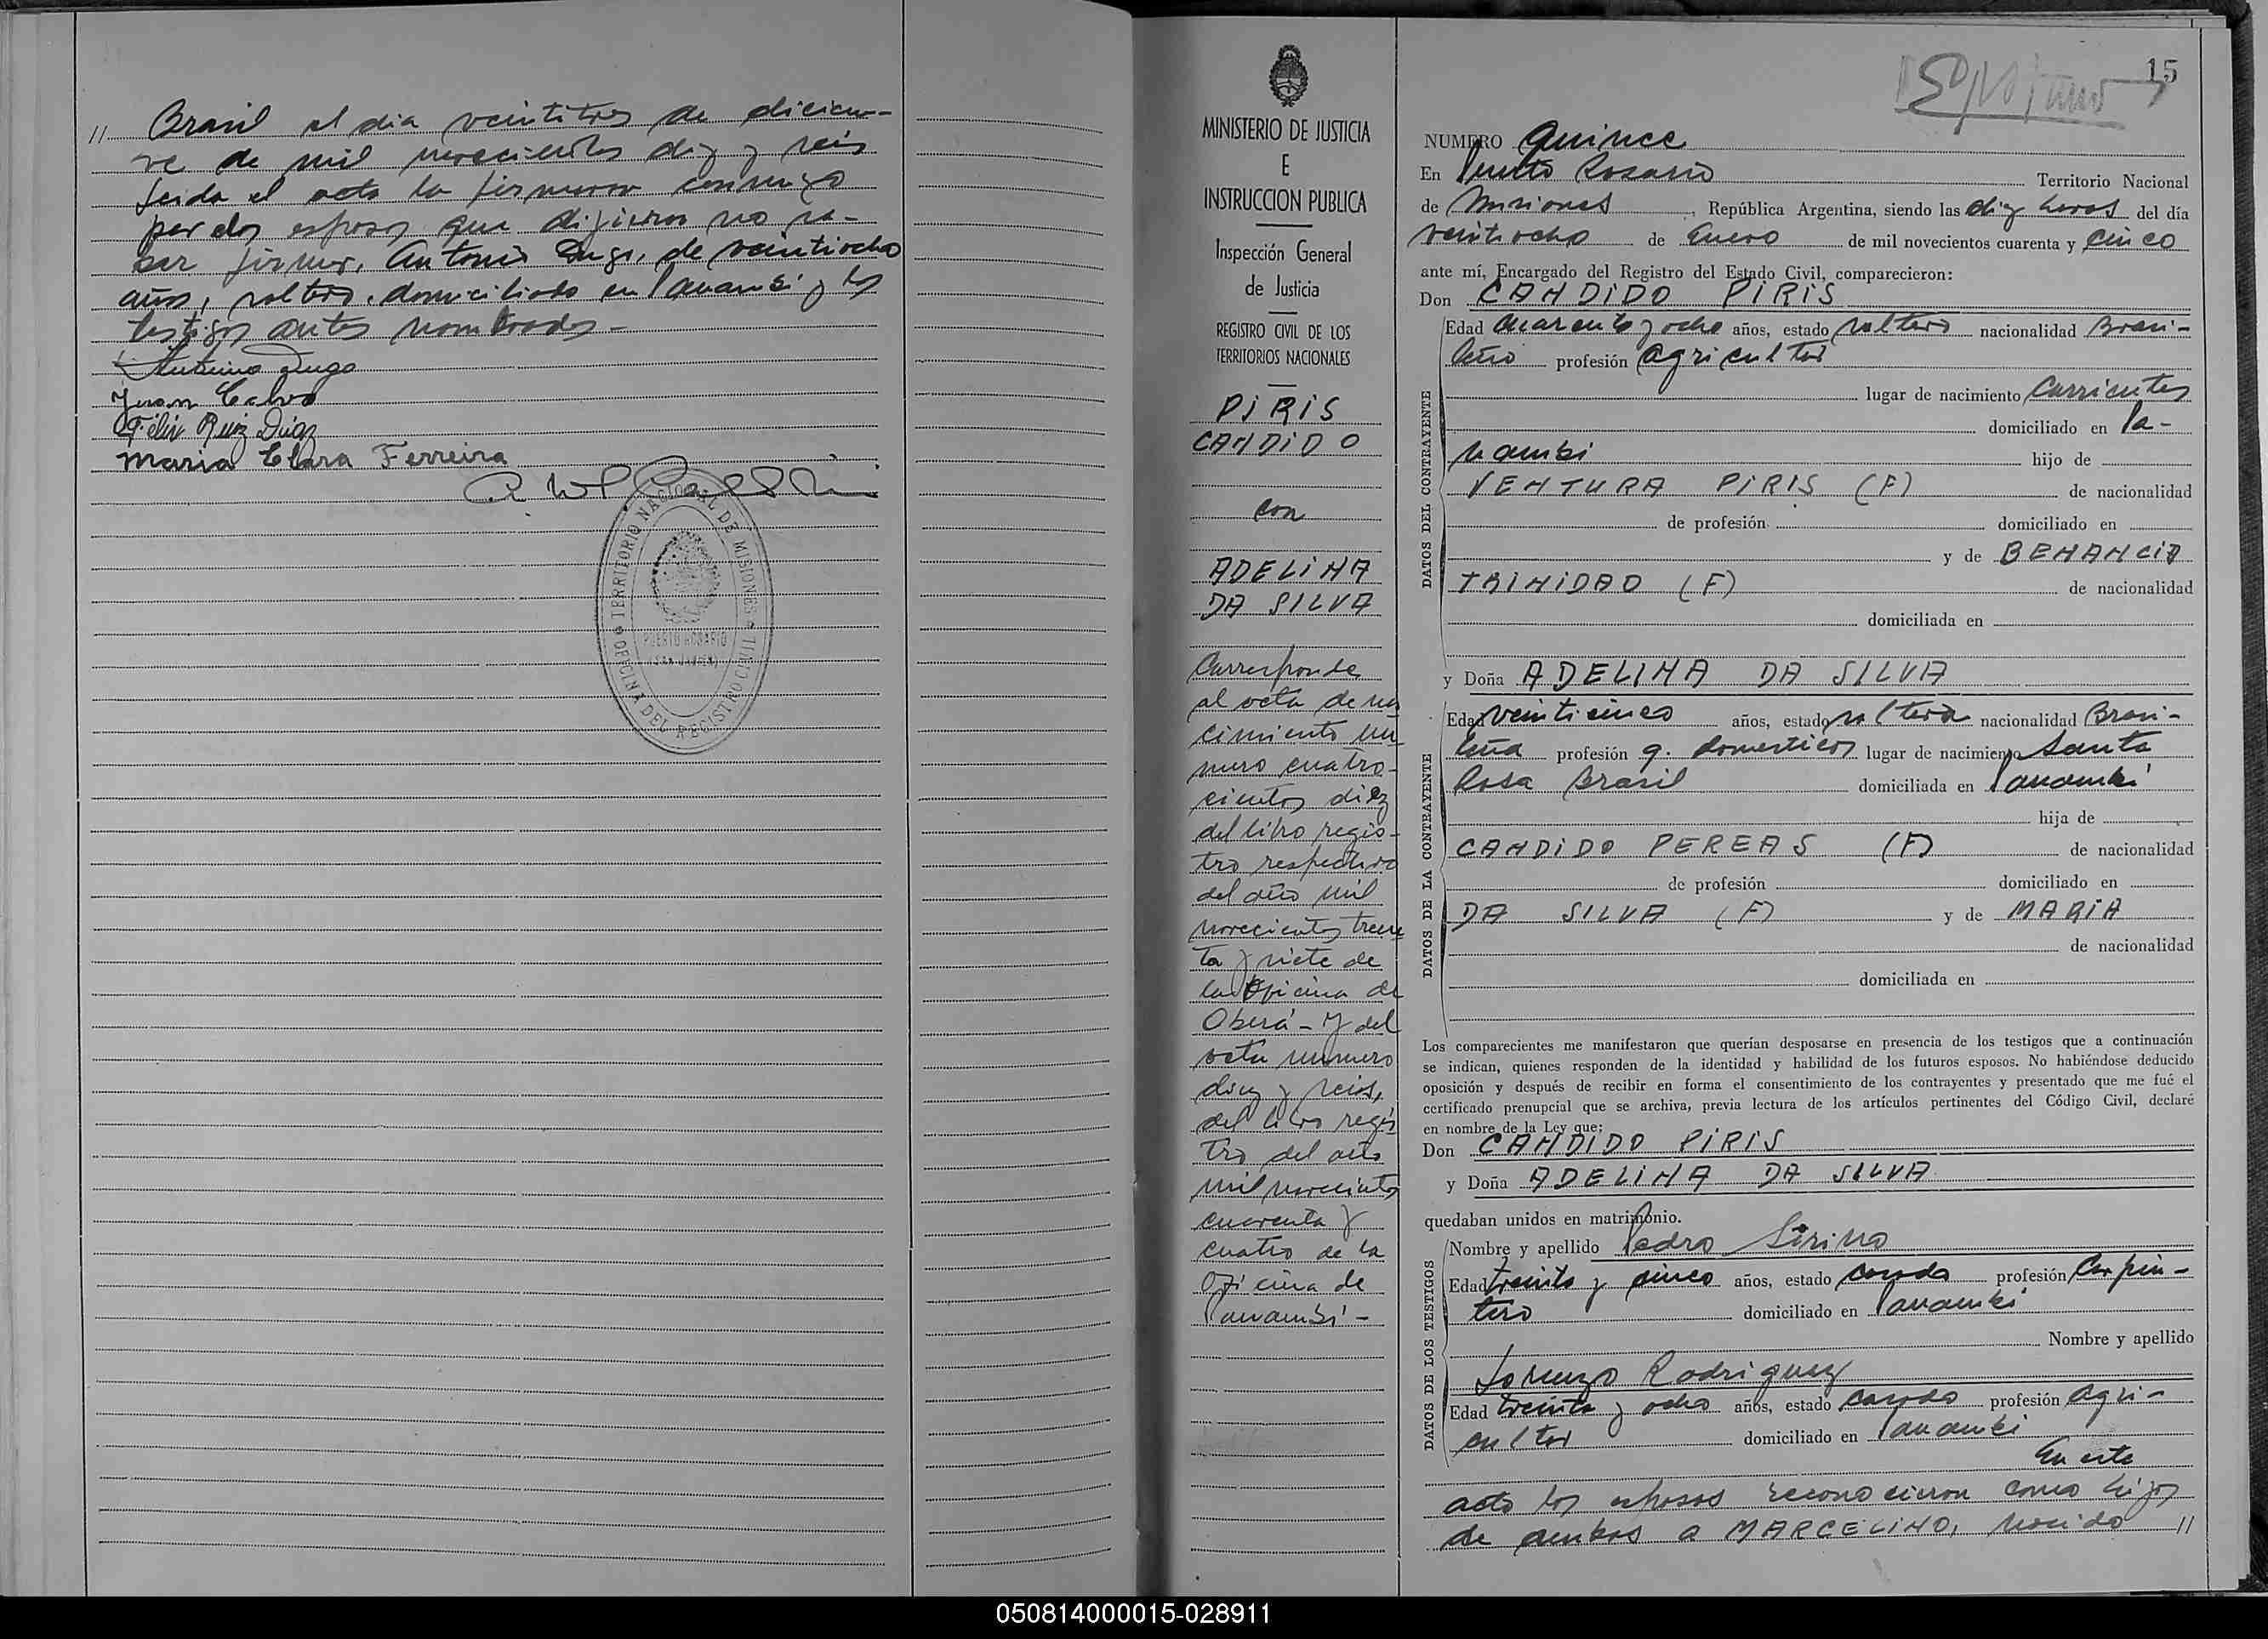 // Brasil el dia veintitres de diciem-
re de mil novecientos diez y seis
Leida el acta la firmaron conmigo
por los esposos que dijeron no sa-
ber firmar, Antonio Dugo, de veintiocho
años, soltero, domiciliado en Panambi y los
testigos antes nombrados -
Antonio Dugo
Juan
Felix Ruiz Diaz
Maria Clara Ferreira
OFICINA DEL REGISTRO CIVIL
TERRITORIO NACIONAL DE MISIONES
PUERTO ROSARIO
MINISTERIO DE JUSTICIA
E
INSTRUCCION PUBLICA
Inspección General
de Justicia
REGISTRO CIVIL DE LOS
TERRITORIOS NACIONALES
PIRIS
CANDIDO
con
ADELINA
DA SILVA
Corresponde
al acta de na
cimiento nu
mero cuatro-
cientos diez
del libro regis-
tro respectivo
del año mil
novecientos trein
ta y siete de
la Oficina de
Oberá - Y del
acta numero
diez y seis,
del libro regis
tro del año
mil novecientos
cuarenta y
cuatro de la
Oficina de
Panambi -
15
NUMERO Quince
En Puerto Rosario Territorio Nacional
de Misiones, República Argentina, siendo las diez horas del día
veintiocho de Enero de mil novecientos cuarenta y cinco
ante mí, Encargado del Registro del Estado Civil, comparecieron:
Don CANDIDO PIRIS
DATOS DEL CONTRAYENTE
Edad cuarenta y ocho años, estado soltero nacionalidad Brasi-
leño profesión agricultor
lugar de nacimiento Corrientes
domiciliado en Pa-
nambi hijo de
VENTURA PIRIS (F) de nacionalidad
de profesión domiciliado en
y de BENANCIA
TRINIDAD (F) de nacionalidad
domiciliada en
y Doña ADELINA DA SILVA
DATOS DE LA CONTRAYENTE
Edad veinticinco años, estado soltera nacionalidad Brasi-
leña profesión q. domesticos lugar de nacimiento Santa
Rosa Brasil domiciliada en Panambi
hija de
CANDIDO PEREAS (F) de nacionalidad
de profesión domiciliado en
DA SILVA (F) y de MARIA
de nacionalidad
domiciliada en
Los comparecientes me manifestaron que querían desposarse en presencia de los testigos que a continuación
se indican, quienes responden de la identidad y habilidad de los futuros esposos. No habiéndose deducido
oposición y después de recibir en forma el consentimiento de los contrayentes y presentado que me fué el
certificado prenupcial que se archiva, previa lectura de los artículos pertinentes del Código Civil, declaré
en nombre de la Ley que:
Don CANDIDO PIRIS
y Doña ADELINA DA SILVA
quedaban unidos en matrimonio.
DATOS DE LOS TESTIGOS
Nombre y apellido Pedro Sirino
Edad treinta y cinco años, estado casado profesión Carpin-
tero domiciliado en Panambi
Nombre y apellido
Lorenzo Rodriguez
Edad treinta y ocho años, estado casado profesión agri-
cultor domiciliado en Panambi
En este
acto los esposos reconocieron como hijos
de ambos a MARCELINO, nacido //
050814000015-028911